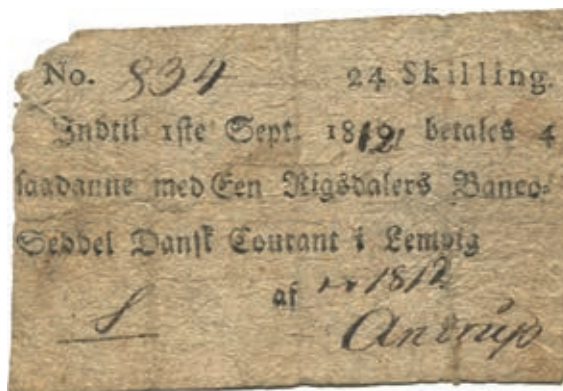 No. 834 24 Skilling.
Indtil 1ste Sept. 1812 betales 4
saadanne med Een Rigsdalers Banco-
Seddel Dansk Courant i Lemvig
af 1812
Andrup